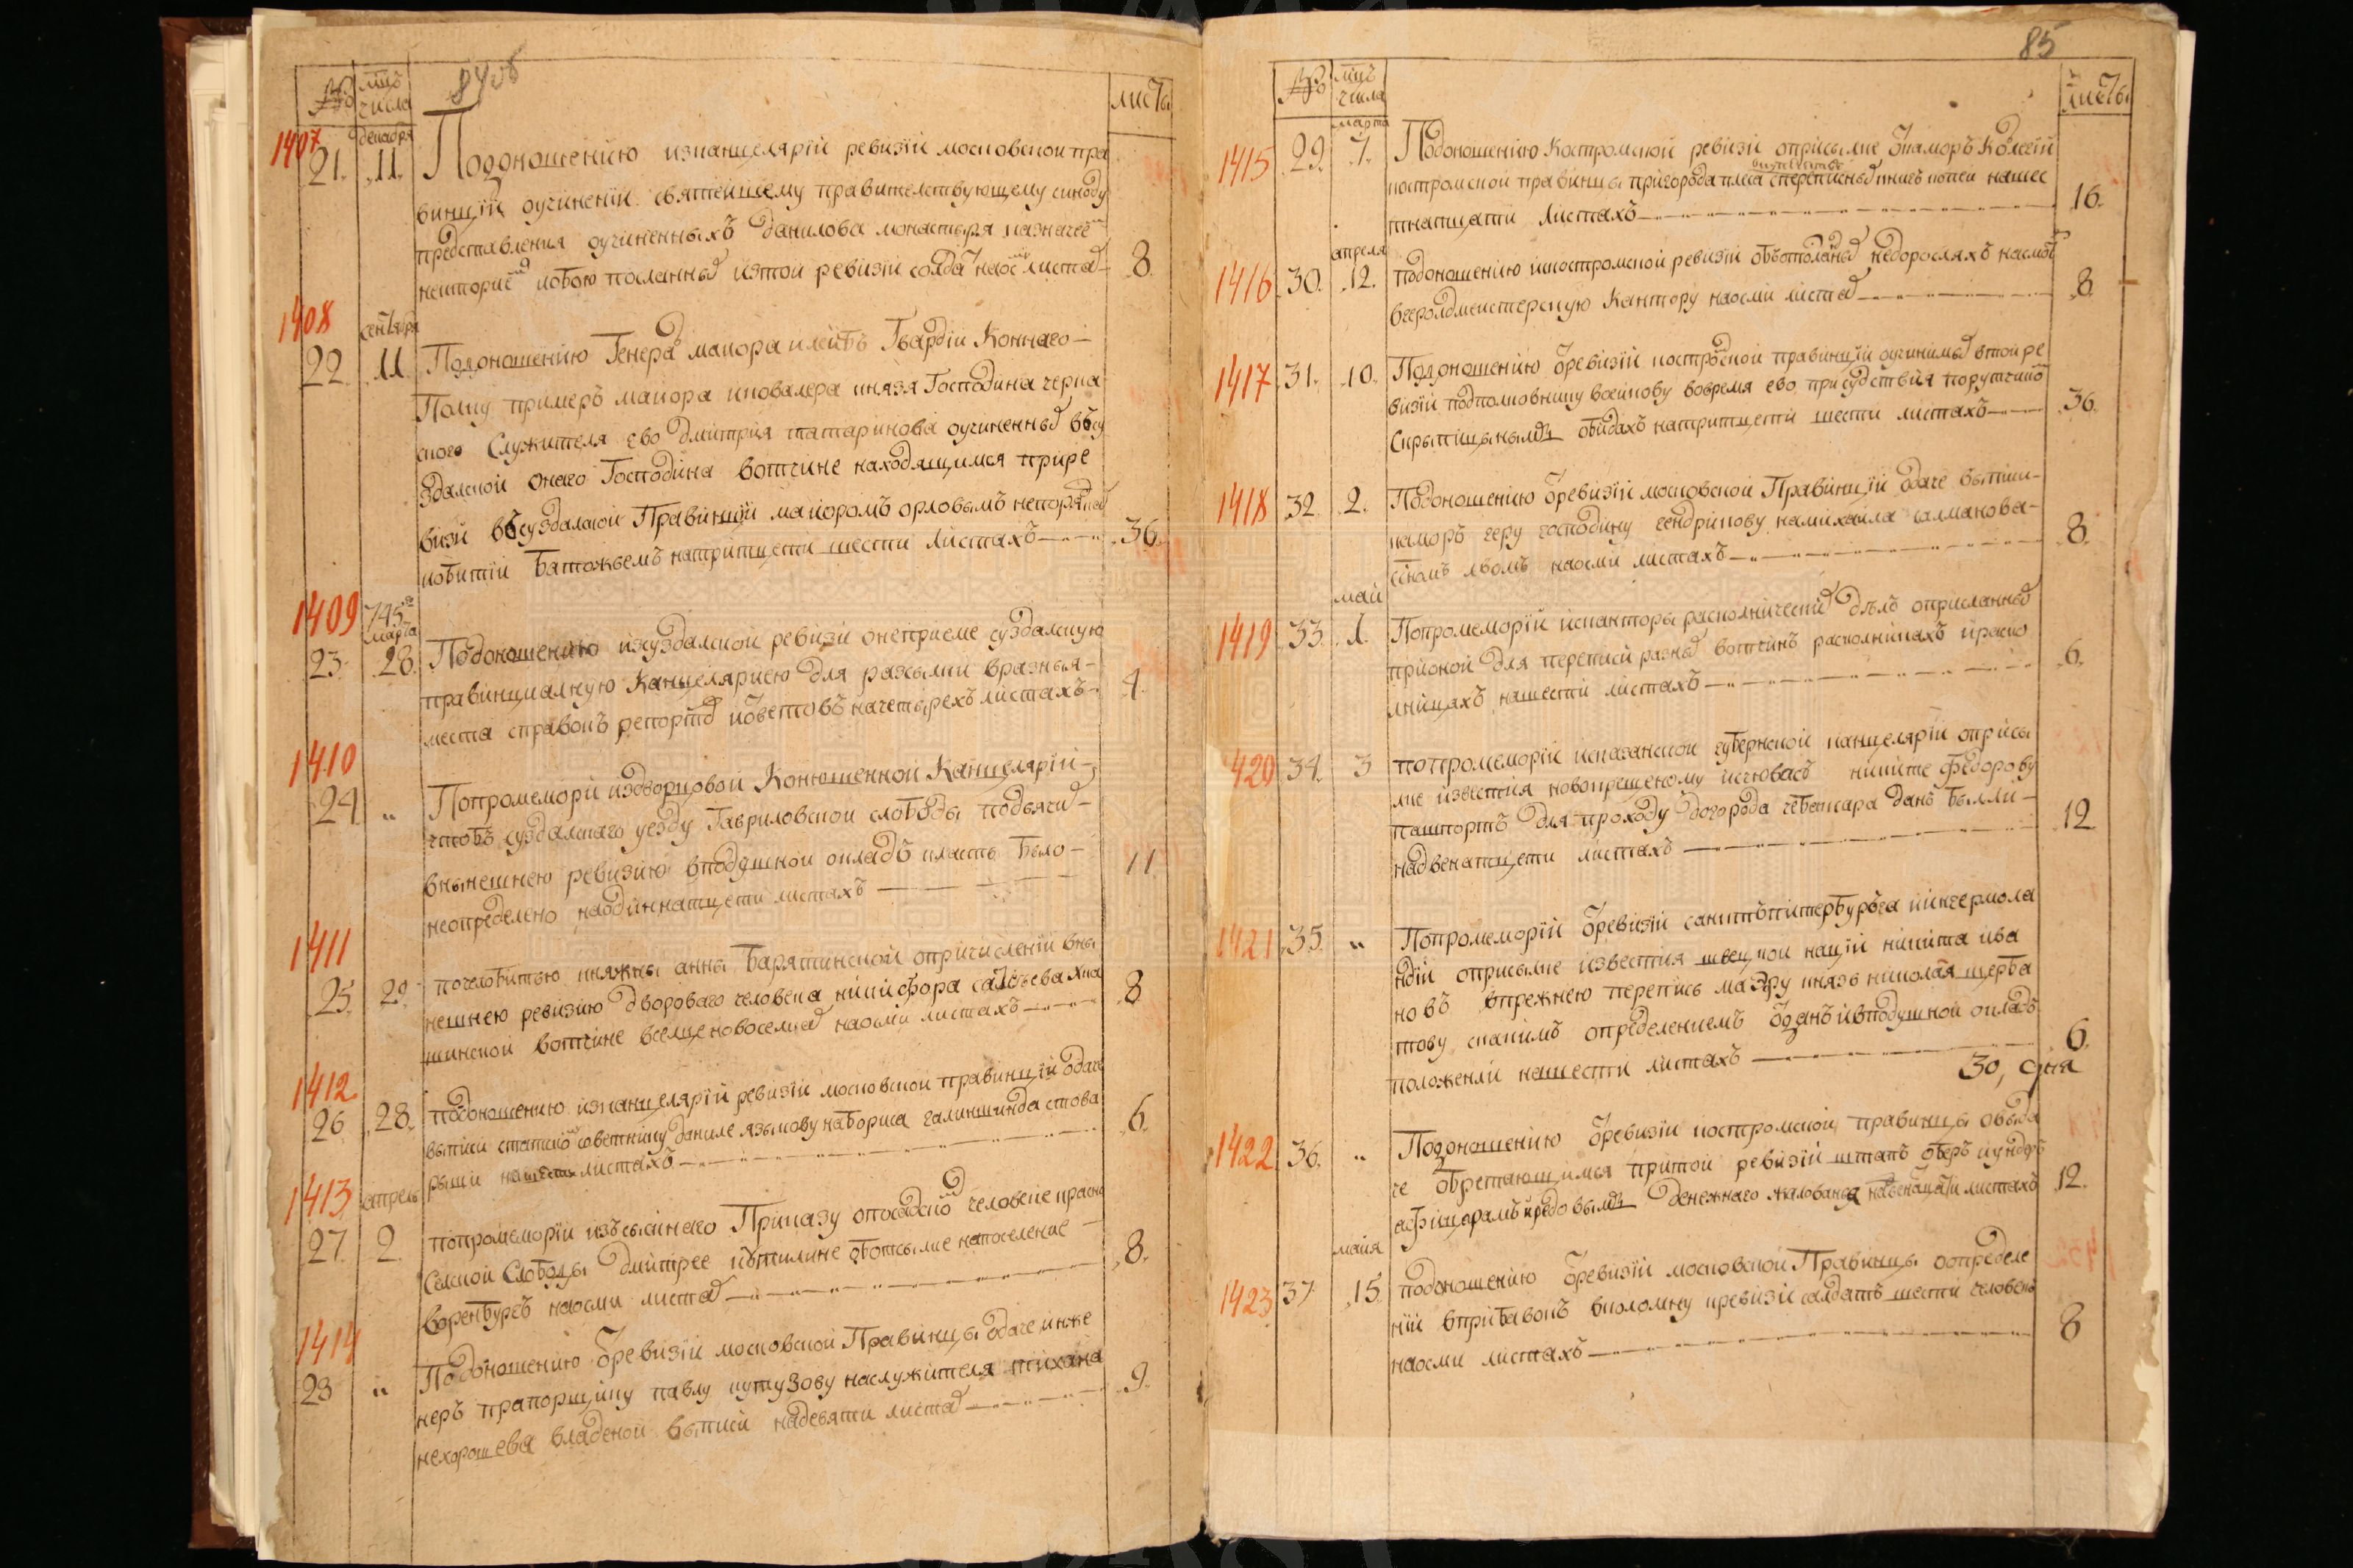 84 об
№ мцъ числа листы
1407 декабря
21. 11. Подоношению исканцелярїи ревизїи московскои пра
винцїи оучиненїи святеишему правителствующему синоду
представления оучиненныхъ данилова монастыря казначеє
некторие побою посланныд истои ревизїи солда наос листад 8
1408 сентября
22. 11. Подоношению Генерал маиора илеибъ Гвардїи Коннаго
Полку примеръ маиора иковалера князя Господина черка
ского Служителя ево дмитрия татаринова оучиненныд въсу
здалскои Онаго Господина вотчине находящимся прире
визи въсуздалскои Правинцїи маиоромъ орловымъ непорядко
побитїи батожьемъ натритцети шести листахъ 36.
1409 745 го марта
23. 28. Подоношению исуздалскои ревизи онеприеме суздалскую
правинциалную Канцеляриею для разсылки вразныя
места справокъ репортов ийзветовъ начетырехъ листахъ 4.
1410
24. " Попромемори издворцовои Конюшеннои Канцелярїи
чтобъ суздалскаго уезду Гавриловскои слободы подьячид
внынешнею ревизию вподушнои окладъ класть было
неопределено наодиннатцети листахъ 11
1411
25. 29 почелобитью княжны анны барятинскои опричисленїи вны
нешнею ревизию дворового человека никифора савельева
шинскои вотчине вселце новоселкад наосми листахъ 8
1412
26. 28. подоношению исканцелярїи ревизїи московскои правинцїи одаче
выписи статскои советнику даниле языкову наборица
рыми нашести листахъ 6.
1413 апрель
27. 2. попромеморїи изъсыскнаго Приказу опосадско человеке красно
селскои Слободы дмитрее путилине оботсылке напоселение
воренбурхъ наосми листад 8.
1414
28 " Подоношению ѿревизїи московскои Правинцы одаче инже
неръ прапорщику павлу кутузову наслужителя тихана
нехорошева владенои выписи надевяти листад 9.
85
№ мцъ числа листы
марта
1415 29. 7. Подоношению Костромскои ревизи оприсылке ѿкаморъ Колегїи
костромскои правинцы пригорода плеса переписныд книгъ копеи нашес
тнатцати листахъ 16.
апреля
1416 30. 12. подоношению икостромскои ревизїи недоросляхъ насмо
вгероллмеистерскую Кантору наосми листад 8
1417 31. 10. Подоношению ѿревизїи костромскои правинцїи оучинимыд втои ре
визїи подполковнику воеикову вовремя ево присудствїя порутчико
Скрыпицынымъ обидахъ натритцети шести листахъ 36.
1418 32. 2. Подоношению ѿревизїи московскои Правинцїи одаче выписи
каморъ геру господину гендрикову намихаила
наосми листахъ 8.
маи
1419 33. 1. Попромеморїи исканторы расколническид дѣлъ оприсланныд
прионой для переписи разныд вотчинъ расколникахъ ираско
лницахъ нашести листахъ 6.
1420 34. 3 попромеморїи исказанскои губернскои канцелярїи оприсы
лке известия новокрещеному никите федорову
пашпортъ для проходу догорода чебаксара данъ былли
надвенатцети листахъ 12
1421 35. " Попромеморїи ѿревизїи санктъпитербурха иингермола
ндїи оприсылке известия швецкои нацїи никита ива
новъ впрежнею перепись маэору князь николая щерба
тову скакимъ определениемъ ѿданъ ивподушнои окладъ
положенли нашести листахъ 6.
30, дня
1422 36. " Подоношению ѿревизїи костромскои правинцы овыда
че обретающимся притои ревизїи штапъ оберъ иундеръ
афицерамъ ирядовымъ денежнаго жалованья надвенатцети листахъ 12.
майя
1423 37. 15. подоношению ѿревизїи московскои Правинцы оопределе
нїи вприбавокъ вколомну кревизїи салдатъ шести человекъ
наосми листахъ 8